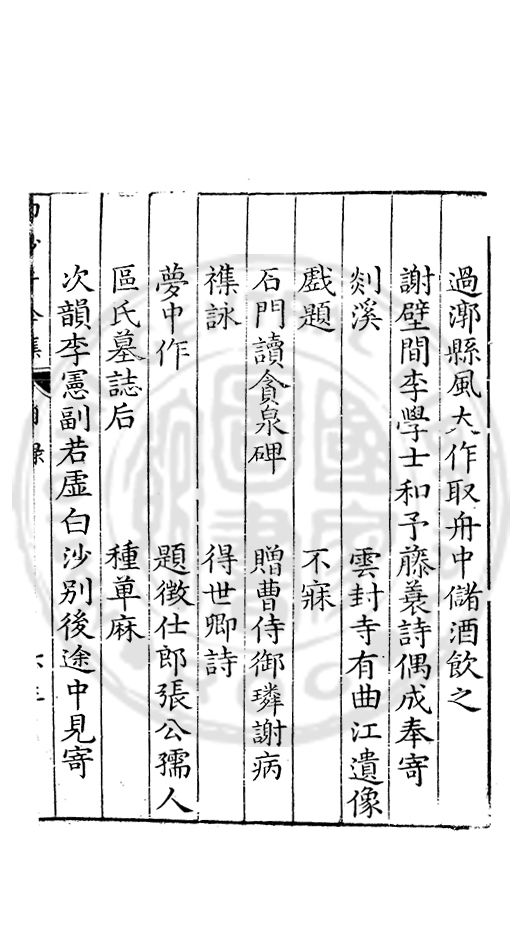 過漷縣風大作取舟中儲酒飲之
謝壁間李學士和予藤蓑詩偶成奉寄
剡溪　雲封寺有曲江遺像
戲題　不寐
石門讀貪泉碑　贈曹侍御璘謝病
襍詠　得世卿詩
夢中作　題徵仕郎張公孺人
區氏墓誌后　種萆麻
次韻李憲副若虛白沙別後途中見寄
全集　目錄